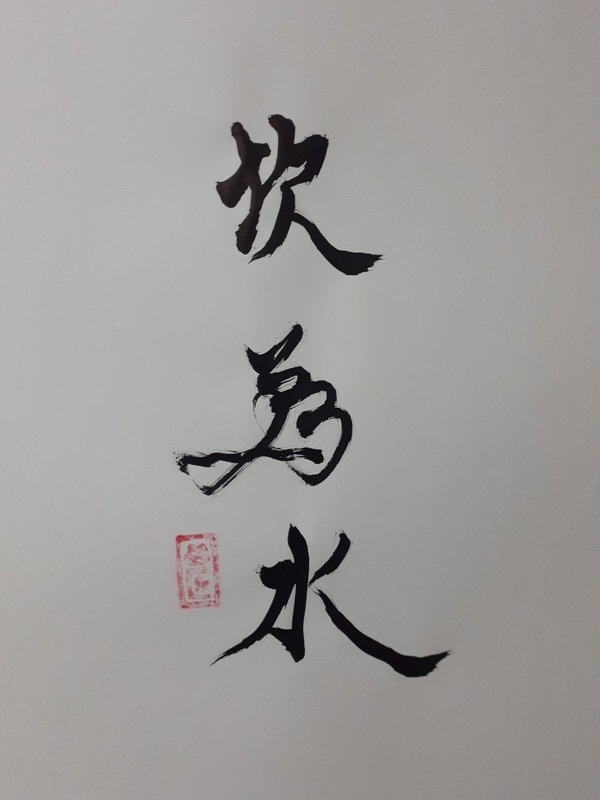 坎為水